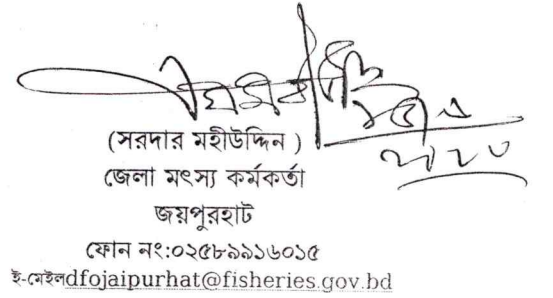 (সরদার মহীউদ্দিন )
জেলা মৎস্য কর্মকর্তা
জয়পুরহাট
ফোন নং:০২৫৮৯৯১৬০১৫
ই-মেইলdfojaipurhat@fisheries.gov.bd